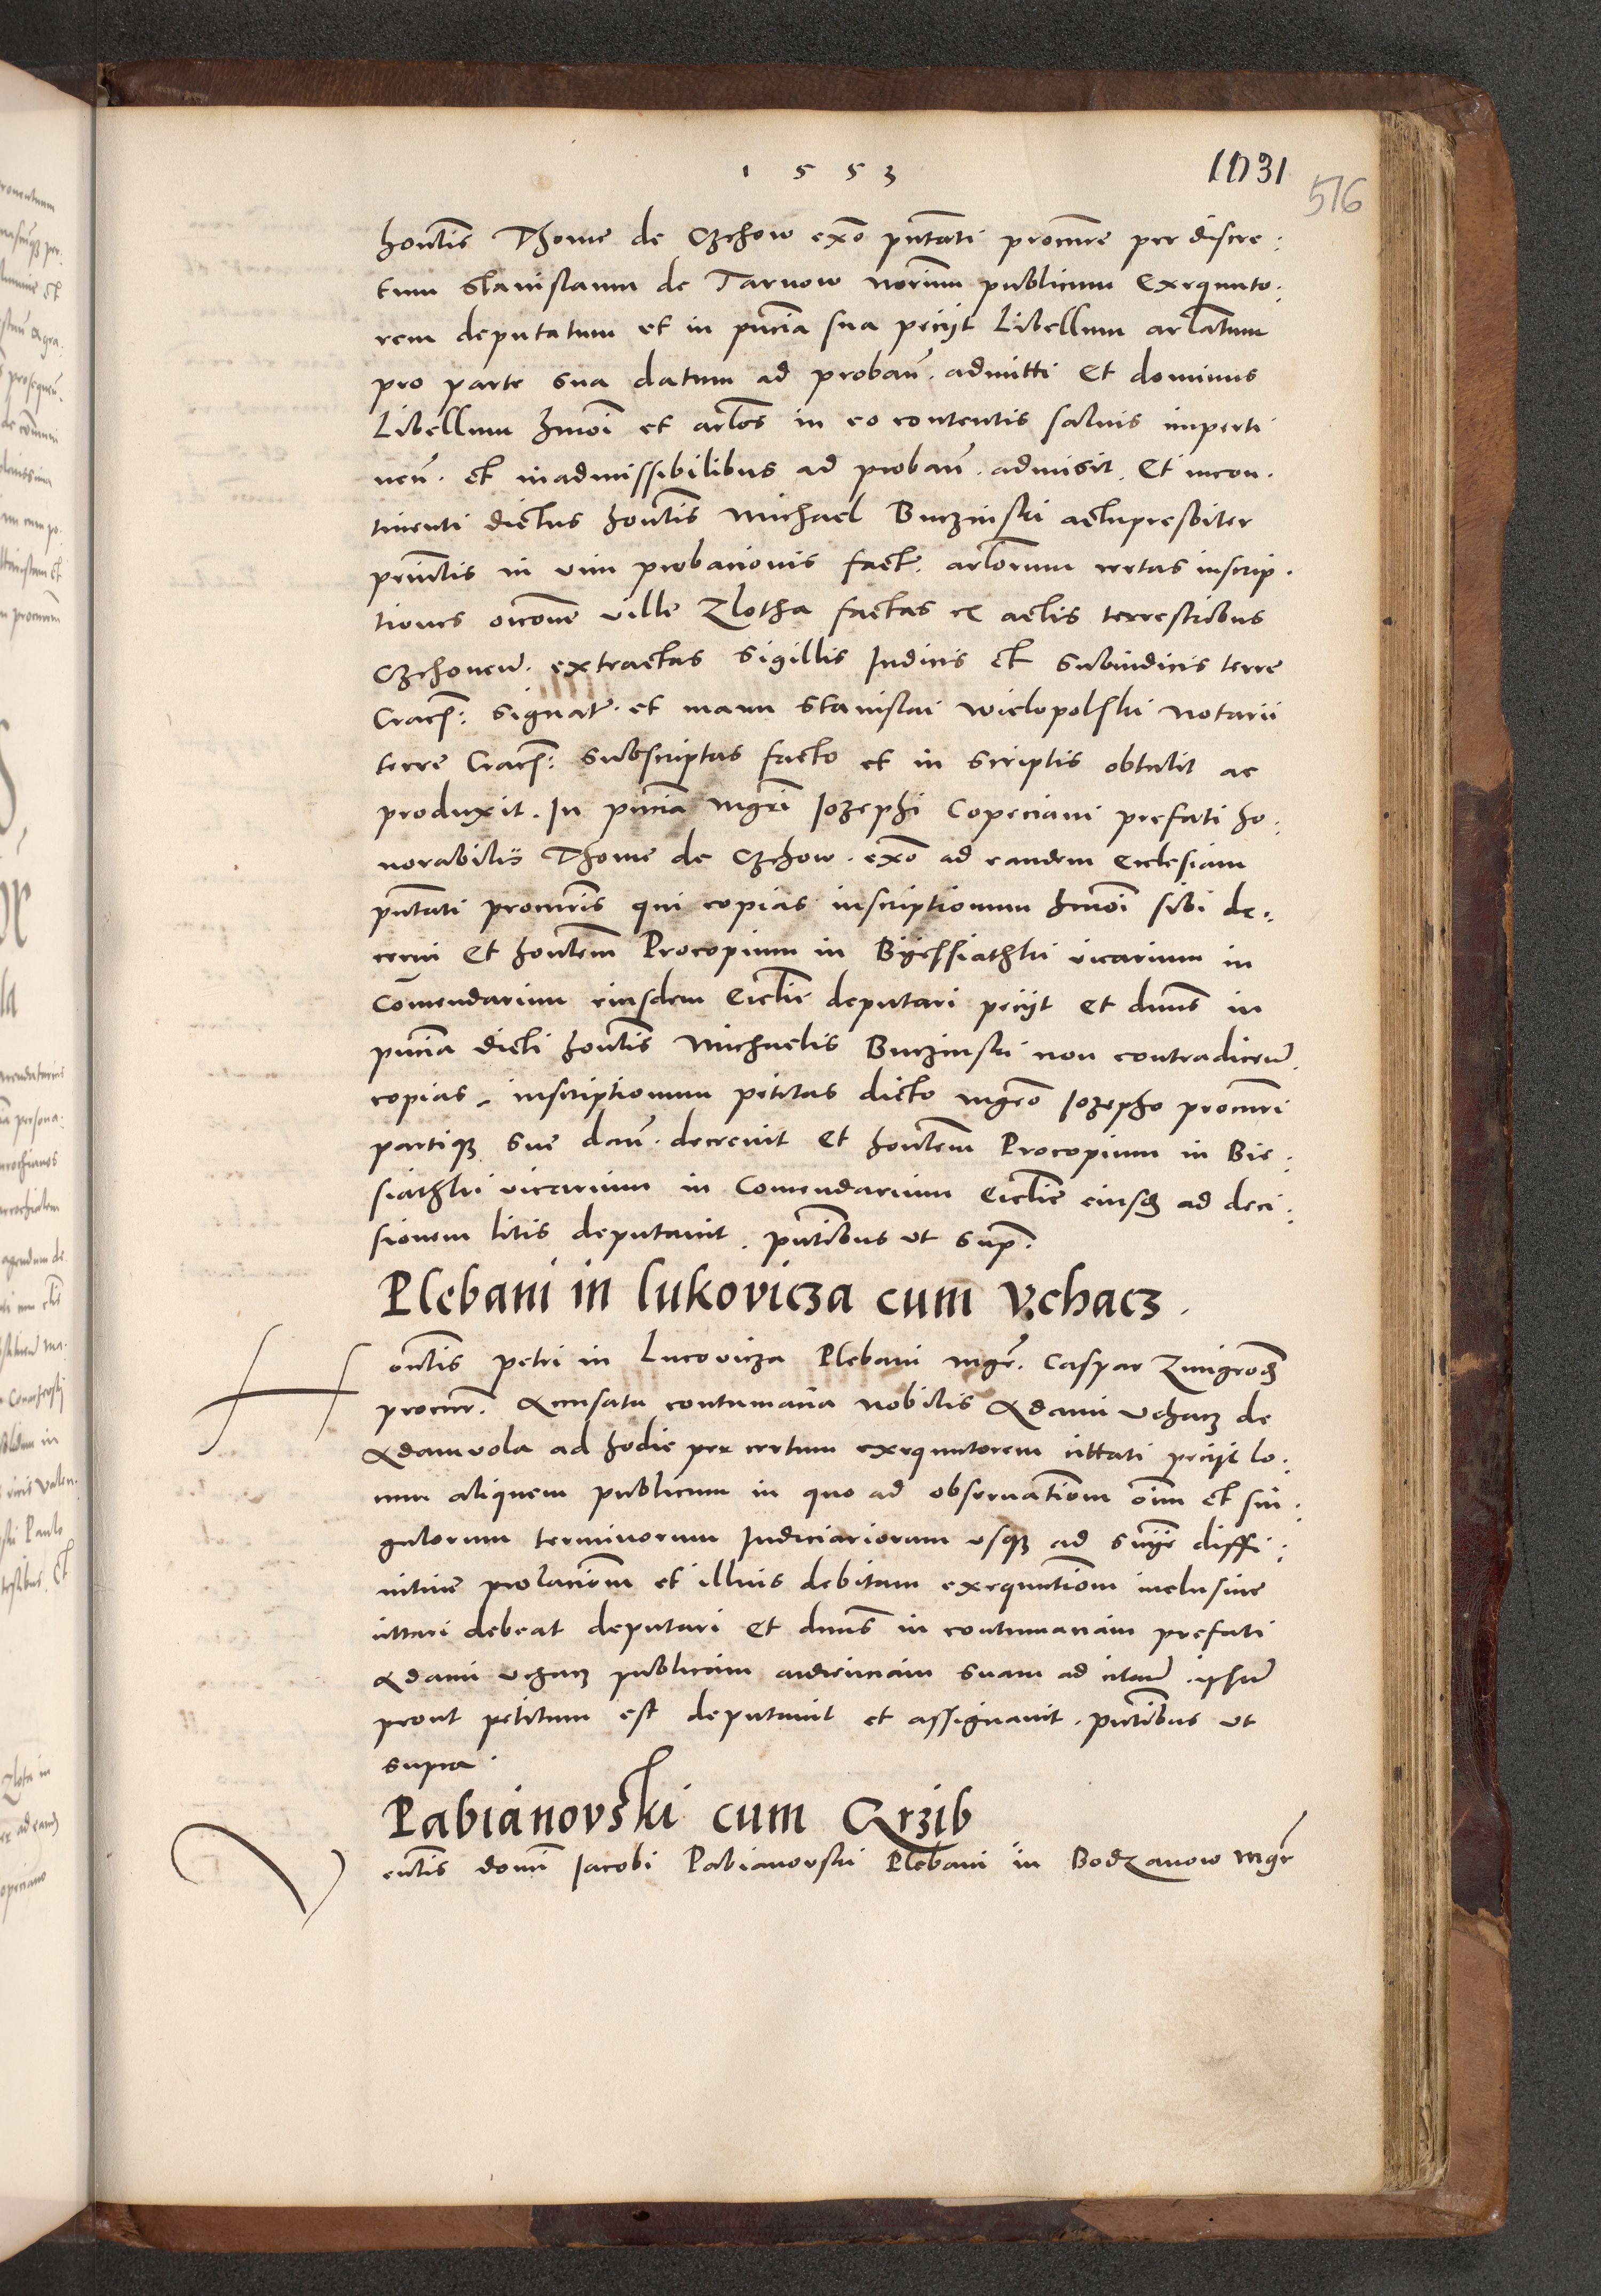 1553
1031
516
honlis Thome de Czchow exo pntati procure per discre:
tum Stanislaum de Tarnow norium publicum Exequuto:
rem deputatum et in pncia sua peciit Libellum arlatum
pro parte sua datum ad proban. admitti Et dominus
Libellum hmoi et arlos in eo contentis saluis imperti
nen. et inadmissibilibus ad proban. admisit. Et incon.
tinenti dictus honlis Michael Buczinski altupresbiter
princlis in vim probacionis fact. arlorum certas inscrip.
tiones ville Zlotha factas ex actis terrestribus
Czchouen. extractas sigillis Iudicis et Subiudicis terre
Cracn: signat. et manu Stanislai Wielopolski Notarii
terre Cracn: subscriptas facto et in scriptis obtulit ac
produxit. In pncia mgri Iozephi Copeciani prefati ho:
norabilis Thome de Czchow. exo ad eandem Ecclesiam
pntati procuris qui copias inscriptionum hmoi sibi de:
cerni Et honlem Procopium in Byessiathki vicarium in
Comendarium eiusdem Ecclie deputari peciit Et dnus in
pncia dicti honlis Michaelis Buczinski non contradicen.
copias inscriptionum petitas dicto mgro Iozepho procuri
partique sue dan. decrevit Et honlem Procopium in Bie:
siathki vicarium in Comendarium Ecclie eiusd ad deci:
sionem litis deputauit. pntibus ut sup.
Plebani in lukovicza cum Vchacz.
Honlis Petri in Lucovicza Plebani mgr. Caspar Zmigrod
procur. Accusata contumacia nobilis Adami Uchacz de
Adamvola ad hodie per certum exequutorem cittati peciit lo:
cum aliquem publicum in quo ad obseruationem oim et sin:
gulorum terminorum Iudiciariorum usque ad snie diffi:
nitiue prolacionem et illius debitam exequutionem inclusive
cittari debeat deputari Et dnus in contumaciam prefati
Adami Uchacz publicam audienciam suam ad citan. ipsum
prout petitum est deputauit et assignauit. pntibus ut
supra.
Pabianovski cum Grzib
Venlis domi Iacobi Pabianovski Plebani in Bodzanow mgr